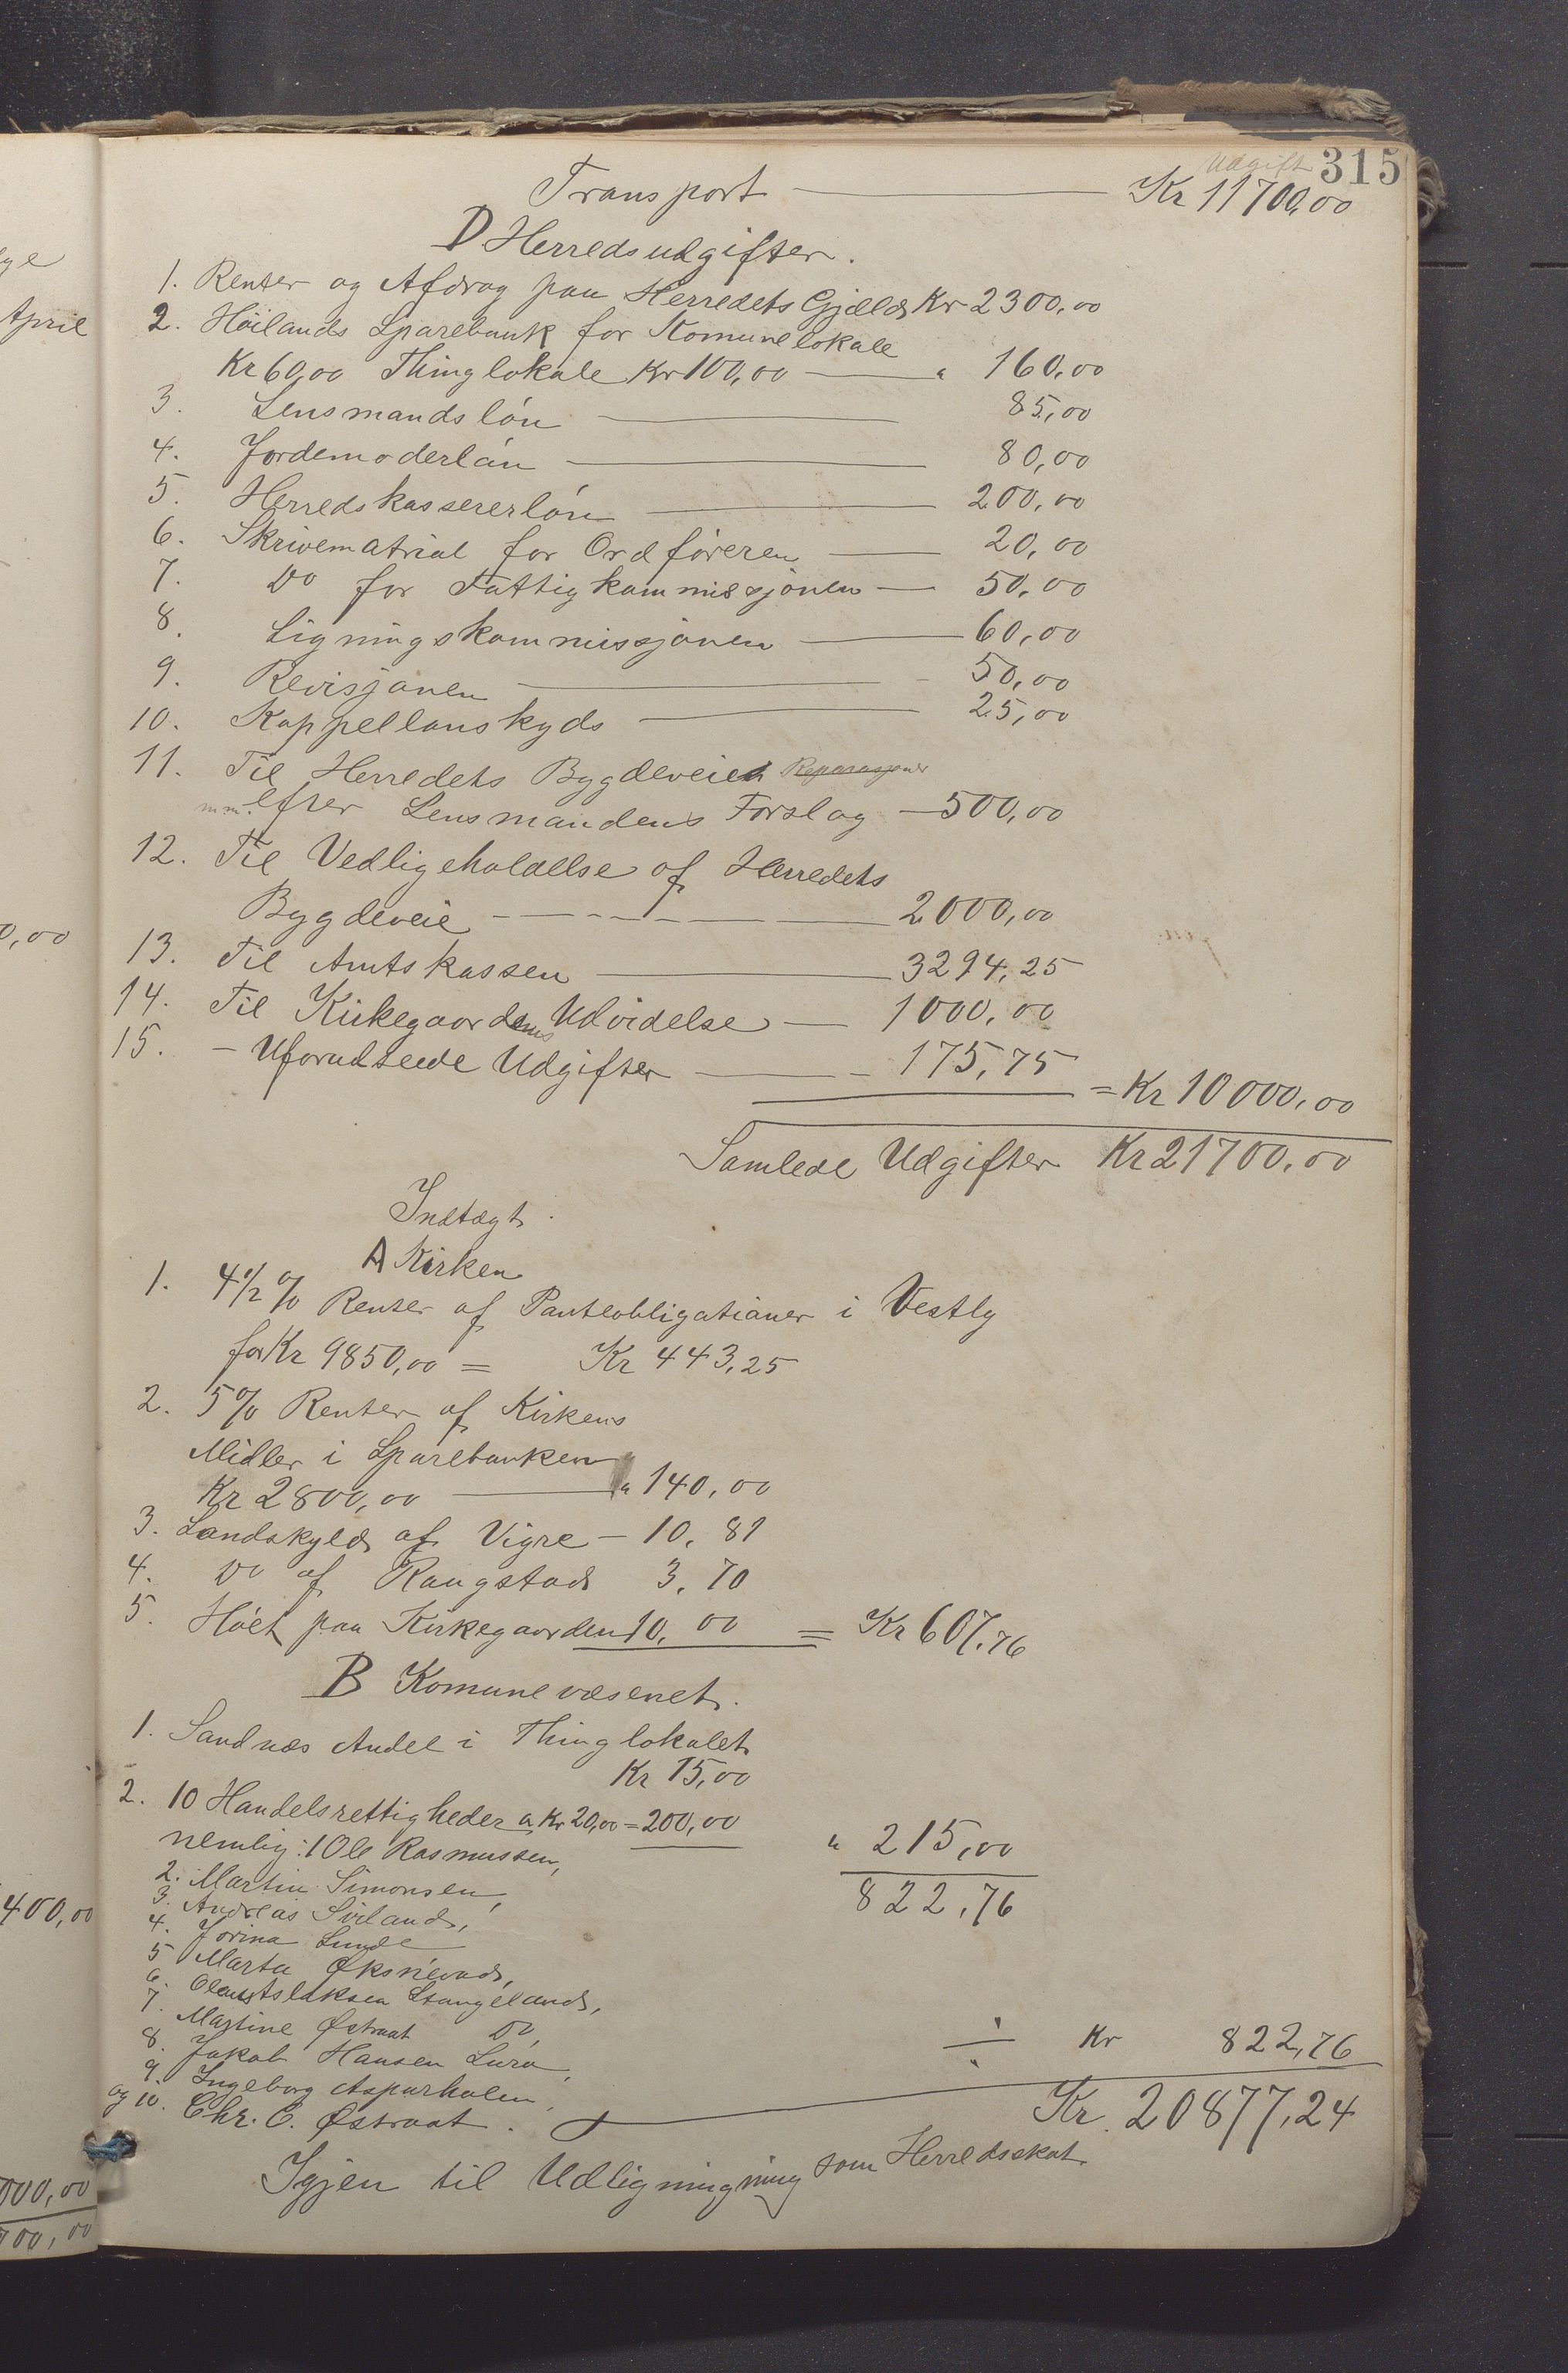 Udgift 315
Transport Kr 11700,00
D Herredsudgifter.
1. Renter og Afdrag paa Herredets Gjæld Kr 2300,00
2. Höilands Sparebank for Komunelokale
Kr 60,00 Thinglokale Kr 100,00 " 160,00
3. Lensmandslön 85,00
4. Jordemoderlön 80,00
5. Herredskassererlön 200,00
6. Skrivematrial for Ordföreren 20,00
7. Do for Fattigkommissjonen 50,00
8. Ligningskommissjonen 60,00
9. Revisjonen 50,00
10. Kappellanskyds 25,00
11. Til Herredets Bygdeveie Reparasjoner
m.m. efter Lensmandens Forslag 500,00
12. Til Vedligeholdelse af Herredets
Bygdeveie 2000,00
13. Til Amtskassen 3294,25
14. Til Kirkegaardens Udvidelse 1000,00
15. - Uforudseede Udgifter 175,75
= Kr 10000,00
Samlede Udgifter Kr 21700,00
Indtægt.
A Kirken
1. 4 1/2 % Renter af Panteobligationer i Vestly
for Kr 9850,00 = Kr 443,25
2. 5% Renter af Kirkens
Midler i Sparebanken
Kr 2800,00 " 140,00
3. Landskyld af Vigre - 10,81
4. Do af Raugstad 3,70
5. Höet paa Kirkegaarden 10,00 = Kr 607,76
B Komunevæsenet.
1. Sandnæs Andel i Thinglokalet
Kr 15,00
2. 10 Handelsrettigheder a Kr 20,00 = 200,00
" 215,00
nemlig: 1 Ole Rasmussen,
2. Martin Simonsen,
822,76
3. Andreas Sviland,
4. Jorina Lunde
5 Marta Øksnevad,
6. Olaus Aslaksen Stangeland,
7. Martine Østraat Do,
÷ Kr 822,76
8. Jakob Hansen Lura,
9. Ingeborg Asparholen,
og 10. Chr. C. Østraat.
Kr. 20877,24
Igjen til Udligningning som Herredsskat
ye
April
0,00
400,00
000,00
700,00